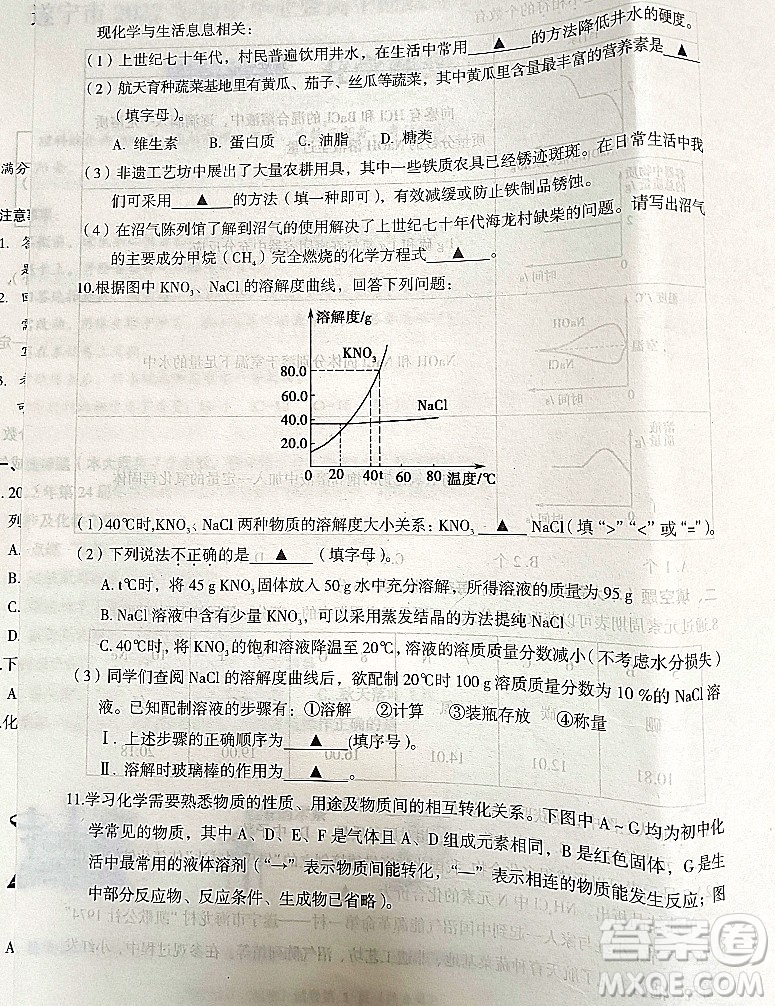 现化学与生活息息相关：
（1）上世纪七十年代，村民普遍饮用井水，在生活中常用 ▲ 的方法降低井水的硬度。
（2）航天育种蔬菜基地里有黄瓜、茄子、丝瓜等蔬菜，其中黄瓜里含有最丰富的营养素是 ▲
（填字母）。
A. 维生素 B. 蛋白质 C. 油脂 D. 糖类
（3）非遗工艺坊中展出了大量农耕用具，其中一些铁质农具已经锈迹斑斑。在日常生活中我
们可采用 ▲ 的方法（填一种即可），有效减缓或防止铁制品锈蚀。
（4）在沼气陈列馆了解到沼气的使用解决了上世纪七十年代海龙村缺柴的问题。请写出沼气
的主要成分甲烷（CH₄）完全燃烧的化学方程式 ▲ 。
10.根据图中 KNO₃、NaCl 的溶解度曲线，回答下列问题：
溶解度/g
KNO₃
80.0
60.0
NaCl
40.0
20.0
0 20 40 t 60 80 温度/℃
（1）40℃时，KNO₃、NaCl 两种物质的溶解度大小关系：KNO₃ ▲ NaCl（填“>”“<”或“=”）。
（2）下列说法不正确的是 ▲ （填字母）。
A. t℃时，将 45 g KNO₃固体放入 50 g 水中充分溶解，所得溶液的质量为 95 g
B. NaCl 溶液中含有少量 KNO₃，可以采用蒸发结晶的方法提纯 NaCl
C. 40℃时，将 KNO₃的饱和溶液降温至 20℃，溶液的溶质质量分数减小（不考虑水分损失）
（3）同学们查阅 NaCl 的溶解度曲线后，欲配制 20℃时 100 g 溶质质量分数为 10 %的 NaCl 溶
液。已知配制溶液的步骤有：①溶解 ②计算 ③装瓶存放 ④称量
Ⅰ. 上述步骤的正确顺序为 ▲ （填序号）。
Ⅱ. 溶解时玻璃棒的作用为 ▲ 。
11.学习化学需要熟悉物质的性质、用途及物质间的相互转化关系。下图中 A～G 均为初中化
学常见的物质，其中 A、D、E、F 是气体且 A、D 组成元素相同，B 是红色固体，G 是生
活中最常用的液体溶剂（“→”表示物质间能转化，“—”表示相连的物质能发生反应；图
中部分反应物、反应条件、生成物已省略）。
答案圈
MXQE.COM